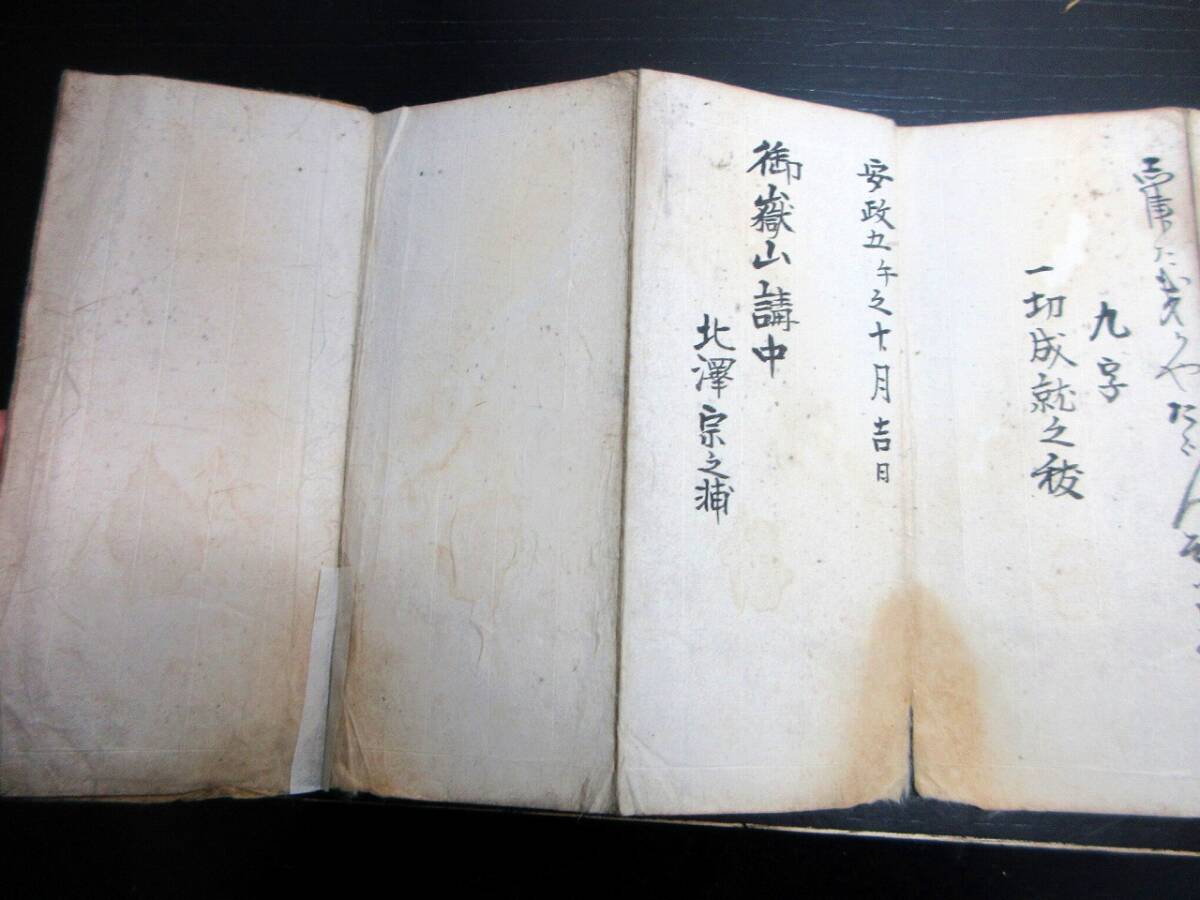 九字
一切成就之秡
安政五午之十月吉日
御嶽山講中
北澤宗之浦